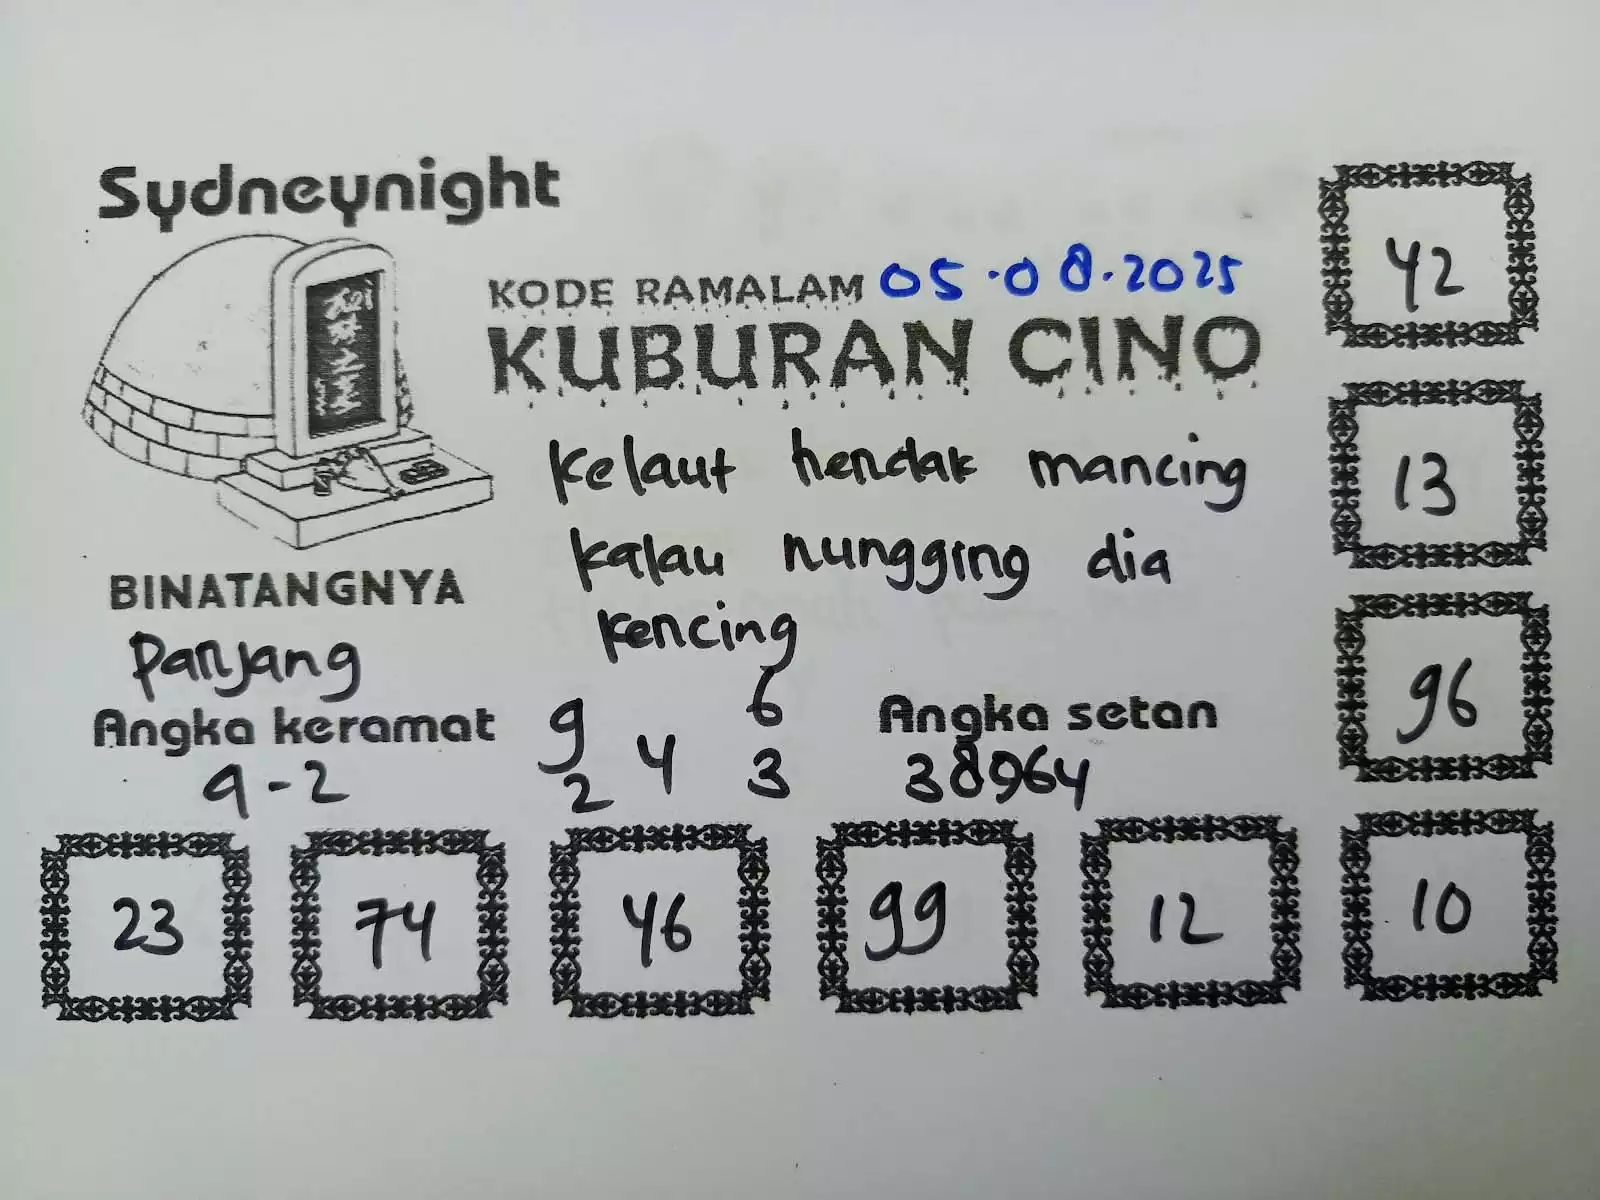 Sydneynight
KODE RAMALAM 05.08.2025
KUBURAN CINO
Kelaut hendak mancing
kalau nungging dia
kencing
BINATANGNYA
Panjang
Angka keramat
9-2
9 6
2 4 3
Angka setan
38964
42
13
96
23 74 46 99 12 10